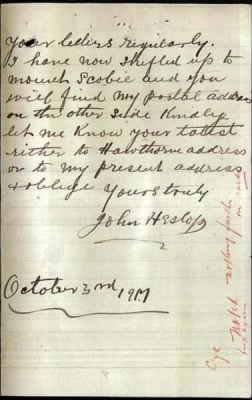 Your letters regularly.
I have now shifted up to
mount Scobie and you
will find my postal address
on the other side Kindly
let me know your tattest
either to Hawthorne address
or to my present address
& oblige Yours truly
John Heslop
October 3rd 1917
Noted nothing further